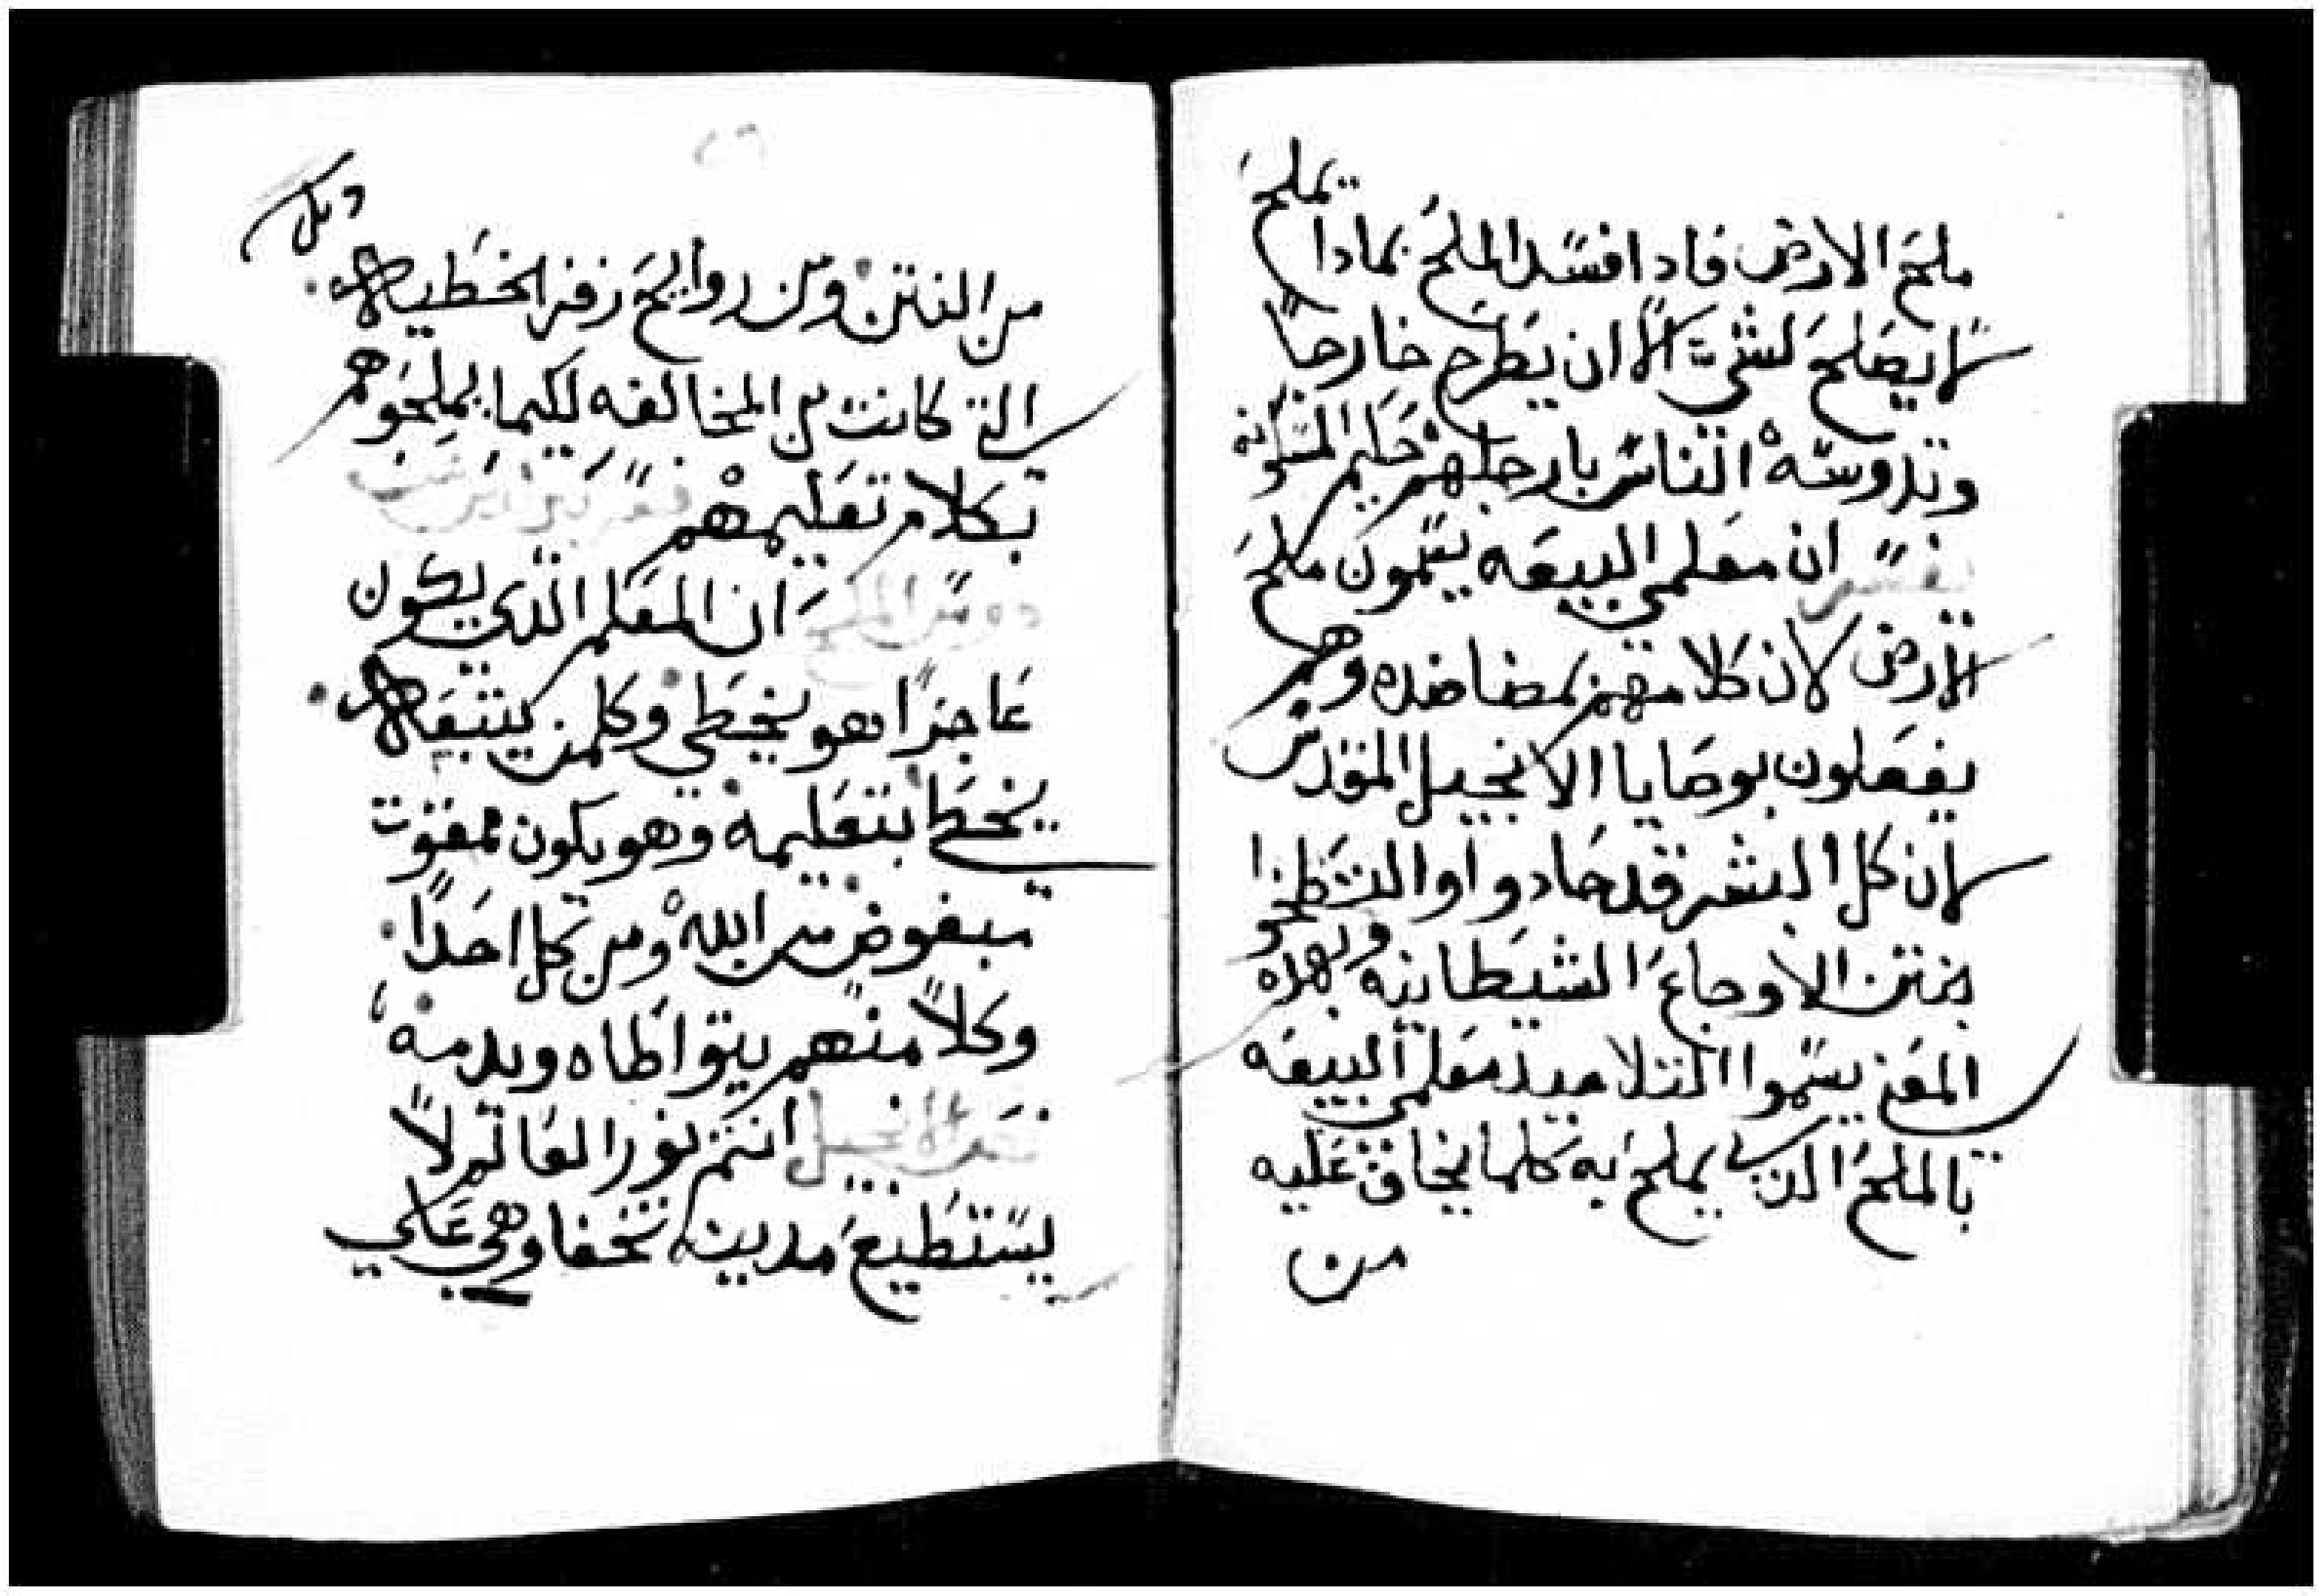 يملح
ملح الارض فادا افسد الملح بمادا
لا يصلح لشي الا ان يطرح خارجاً
وتدوسه الناس بارجلهم
ان معلمي البيعه يتمون ملح
الارض لان كلامهم بمضاضه وهم
يفعلون بوصايا الانجيل المقدس
لان كل البشر قد حادوا والتطخوا
بنتن الاوجاع الشيطانيه وبهده
المعنى يسموا التلاميد معلمي البيعه
بالملح الدي يملح به كلما يخاف عليه
من
من النتن ومن روايح زفر الخطيه
التي كانت من المخالفه لكيما يملحوهم
بكلام تعليمهم
ان المعلم الدي يكون
عاجزاً هو يخطي وكلمن يتبعه
يخطي بتعليمه وهو يكون ممقوت
مبغوض من الله ومن كل احداً
وكلاً منهم يتواطاه ويدمه
نص الانجيل انتم نور العالم لا
يستطيع مدينه تخفا وهي علي